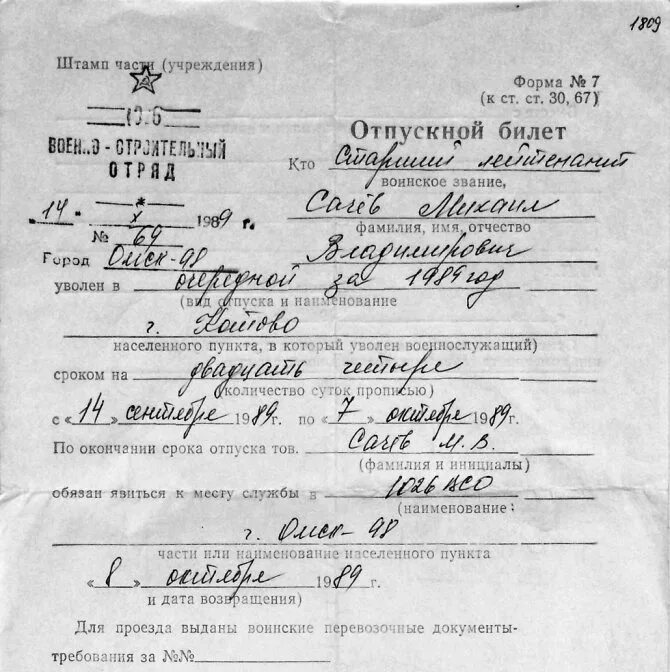 1809
Штамп части (учреждения)
Форма № 7
(к ст. ст. 30, 67)
ВОЕННО-СТРОИТЕЛЬНЫЙ
ОТРЯД
Отпускной билет
Кто Старший лейтенант
воинское звание,
„14" X 1989 г. Сачёв Михаил
фамилия, имя, отчество
№ 69 Владимирович
Город Омск-98
уволен в очередной за 1989 год
(вид отпуска и наименование
г. Котово
населенного пункта, в который уволен военнослужащий)
сроком на двадцать четыре
(количество суток прописью)
с «14» сентября 1989г. по «7» октября 1989г.
По окончании срока отпуска тов. Сачёв М.В.
(фамилия и инициалы)
обязан явиться к месту службы в 1026 ВСО
(наименование
г. Омск-98
части или наименование населенного пункта
«8» октября 1989 г.
и дата возвращения)
Для проезда выданы воинские перевозочные документы-
требования за №№